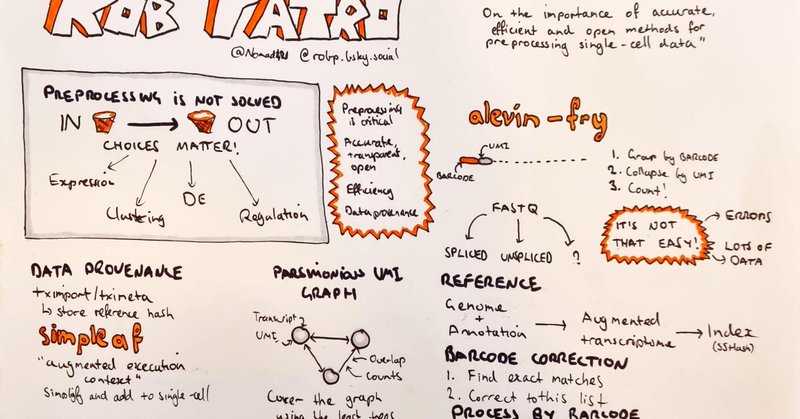 ROB PATRO
@robp.bsky.social
On the importance of accurate,
efficient and open methods for
preprocessing single-cell data"
PREPROCESSING IS NOT SOLVED
IN → OUT
CHOICES MATTER!
Expression
Clustering
DE
Regulation
Preprocessing
is critical
Accurate,
transparent,
open
Efficiency
Data provenance
alevin-fry
UMI
BARCODE
1. Group by BARCODE
2. Collapse by UMI
3. Count!
FASTQ
SPLICED UNSPLICED ?
IT'S NOT
THAT EASY!
ERRORS
LOTS OF
DATA
DATA PROVENANCE
tximport/tximeta
↳ store reference hash
simpleaf
"augmented execution
context"
Simplify and add to single-cell
PARSIMONIOUS UMI
GRAPH
Transcript
UMI
Overlap
Counts
Cover the graph
using the least trans
REFERENCE
Genome
+
Annotation → Augmented
transcriptome → Index
(SSHash)
BARCODE CORRECTION
1. Find exact matches
2. Correct to this list
PROCESS BY BARCODE